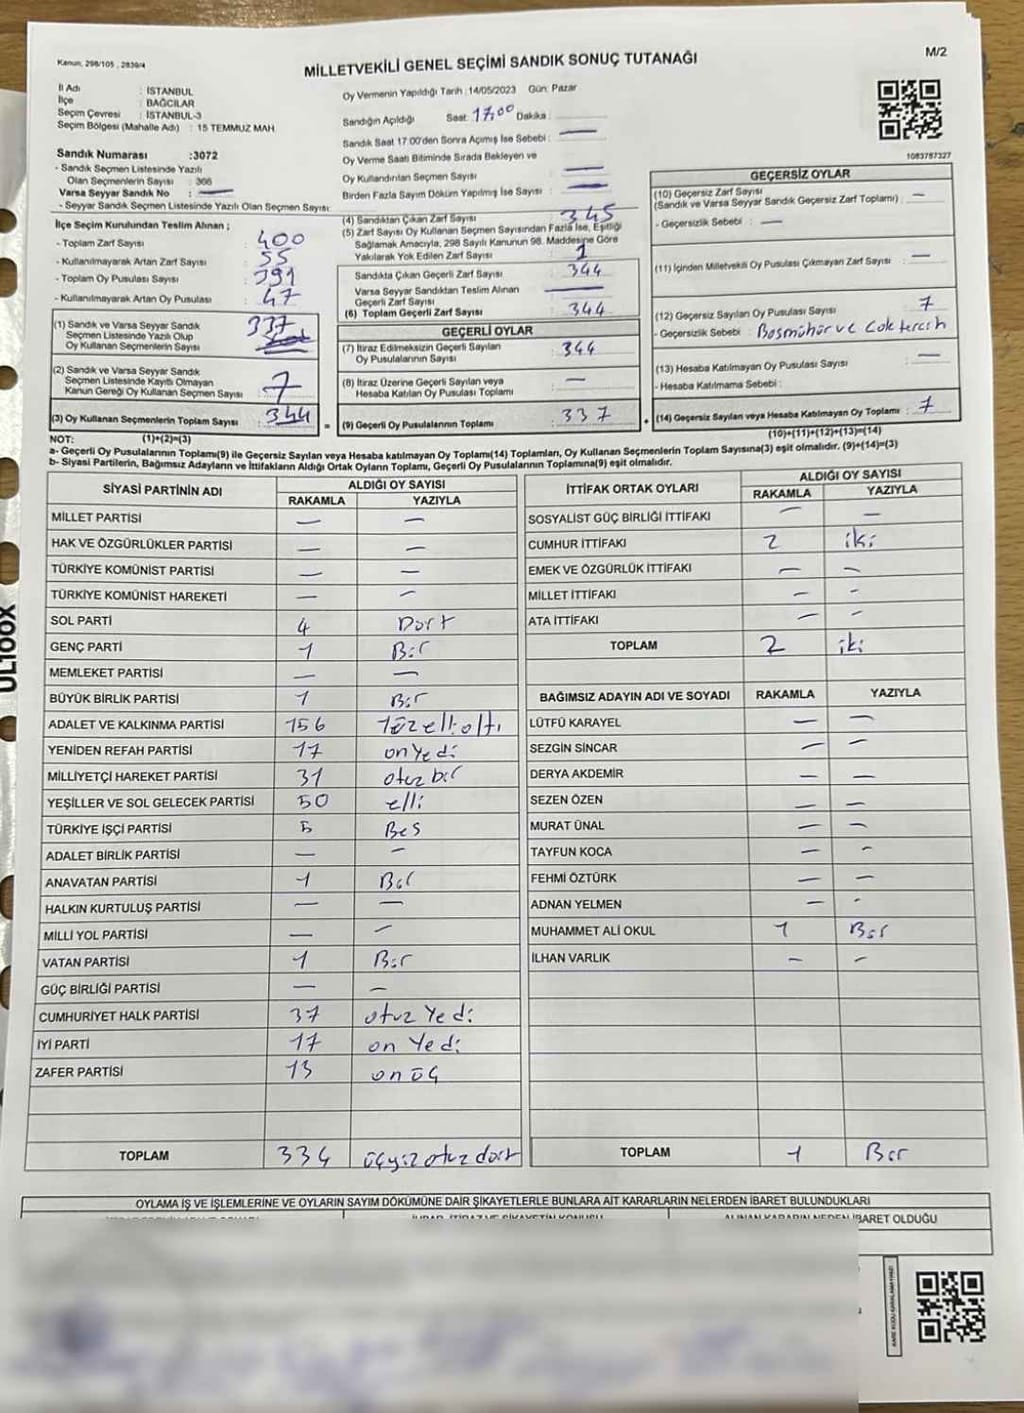 Kanun, 298/105 , 2839/4
MİLLETVEKİLİ GENEL SEÇİMİ SANDIK SONUÇ TUTANAĞI
M/2
İl Adı : İSTANBUL
İlçe : BAĞCILAR
Seçim Çevresi : İSTANBUL-3
Seçim Bölgesi (Mahalle Adı) : 15 TEMMUZ MAH.
Sandık Numarası :3072
- Sandık Seçmen Listesinde Yazılı
Olan Seçmenlerin Sayısı :
Varsa Seyyar Sandık No : —
- Seyyar Sandık Seçmen Listesinde Yazılı Olan Seçmen Sayısı:
Oy Vermenin Yapıldığı Tarih :14/05/2023 Gün: Pazar
Sandığın Açıldığı Saat: 17,00 Dakika :
Sandık Saat 17.00'den Sonra Açımış İse Sebebi : —
Oy Verme Saati Bitiminde Sırada Bekleyen ve
Oy Kullandırılan Seçmen Sayısı : —
Birden Fazla Sayım Döküm Yapılmış İse Sayısı : —
1083787327
İlçe Seçim Kurulundan Teslim Alınan ;
- Toplam Zarf Sayısı : 400
- Kullanılmayarak Artan Zarf Sayısı : 55
- Toplam Oy Pusulası Sayısı : 391
- Kullanılmayarak Artan Oy Pusulası : 47
(1) Sandık ve Varsa Seyyar Sandık
Seçmen Listesinde Yazılı Olup
Oy Kullanan Seçmenlerin Sayısı 337
(2) Sandık ve Varsa Seyyar Sandık
Seçmen Listesinde Kayıtlı Olmayan
Kanun Gereği Oy Kullanan Seçmen Sayısı 7
(3) Oy Kullanan Seçmenlerin Toplam Sayısı : 344
(4) Sandıktan Çıkan Zarf Sayısı 345
(5) Zarf Sayısı Oy Kullanan Seçmen Sayısından Fazla İse, Eşitliği
Sağlamak Amacıyla, 298 Sayılı Kanunun 98. Maddesine Göre
Yakılarak Yok Edilen Zarf Sayısı : 1
Sandıkta Çıkan Geçerli Zarf Sayısı : 344
Varsa Seyyar Sandıktan Teslim Alınan
Geçerli Zarf Sayısı —
(6) Toplam Geçerli Zarf Sayısı : 344
GEÇERLİ OYLAR
(7) İtiraz Edilmeksizin Geçerli Sayılan
Oy Pusulalarının Sayısı : 344
(8) İtiraz Üzerine Geçerli Sayılan veya
Hesaba Katılan Oy Pusulası Toplamı : —
= (9) Geçerli Oy Pusulalarının Toplamı : 337
GEÇERSİZ OYLAR
(10) Geçersiz Zarf Sayısı : —
(Sandık ve Varsa Seyyar Sandık Geçersiz Zarf Toplamı)
- Geçersizlik Sebebi : —
(11) İçinden Milletvekili Oy Pusulası Çıkmayan Zarf Sayısı : —
(12) Geçersiz Sayılan Oy Pusulası Sayısı : 7
- Geçersizlik Sebebi : Bosmühür ve Cok tercih
(13) Hesaba Katılmayan Oy Pusulası Sayısı : —
- Hesaba Katılmama Sebebi :
+ (14) Geçersiz Sayılan veya Hesaba Katılmayan Oy Toplamı : 7
NOT: (1)+(2)=(3)
(10)+(11)+(12)+(13)=(14)
a- Geçerli Oy Pusulalarının Toplamı(9) ile Geçersiz Sayılan veya Hesaba katılmayan Oy Toplamı(14) Toplamları, Oy Kullanan Seçmenlerin Toplam Sayısına(3) eşit olmalıdır. (9)+(14)=(3)
b- Siyasi Partilerin, Bağımsız Adayların ve İttifakların Aldığı Ortak Oyların Toplamı, Geçerli Oy Pusulalarının Toplamına(9) eşit olmalıdır.
SİYASİ PARTİNİN ADI ALDIĞI OY SAYISI
RAKAMLA YAZIYLA
MİLLET PARTİSİ — —
HAK VE ÖZGÜRLÜKLER PARTİSİ — —
TÜRKİYE KOMÜNİST PARTİSİ — —
TÜRKİYE KOMÜNİST HAREKETİ — —
SOL PARTİ 4 Dort
GENÇ PARTİ 1 Bir
MEMLEKET PARTİSİ — —
BÜYÜK BİRLİK PARTİSİ 1 Bir
ADALET VE KALKINMA PARTİSİ 156 Yüzelli altı
YENİDEN REFAH PARTİSİ 17 on yedi
MİLLİYETÇİ HAREKET PARTİSİ 31 otuz bir
YEŞİLLER VE SOL GELECEK PARTİSİ 50 elli
TÜRKİYE İŞÇİ PARTİSİ 5 Bes
ADALET BİRLİK PARTİSİ — —
ANAVATAN PARTİSİ 1 Bir
HALKIN KURTULUŞ PARTİSİ — —
MİLLİ YOL PARTİSİ — —
VATAN PARTİSİ 1 Bir
GÜÇ BİRLİĞİ PARTİSİ — —
CUMHURİYET HALK PARTİSİ 37 otuz Yedi
İYİ PARTİ 17 on Yedi
ZAFER PARTİSİ 13 on üç
TOPLAM 334 üçyüz otuz dört
İTTİFAK ORTAK OYLARI ALDIĞI OY SAYISI
RAKAMLA YAZIYLA
SOSYALİST GÜÇ BİRLİĞİ İTTİFAKI — —
CUMHUR İTTİFAKI 2 iki
EMEK VE ÖZGÜRLÜK İTTİFAKI — —
MİLLET İTTİFAKI — —
ATA İTTİFAKI — —
TOPLAM 2 iki
BAĞIMSIZ ADAYIN ADI VE SOYADI RAKAMLA YAZIYLA
LÜTFÜ KARAYEL — —
SEZGİN SİNCAR — —
DERYA AKDEMİR — —
SEZEN ÖZEN — —
MURAT ÜNAL — —
TAYFUN KOCA — —
FEHMİ ÖZTÜRK — —
ADNAN YELMEN — —
MUHAMMET ALİ OKUL 1 Bir
İLHAN VARLIK — —
TOPLAM 1 Bir
OYLAMA İŞ VE İŞLEMLERİNE VE OYLARIN SAYIM DÖKÜMÜNE DAİR ŞİKAYETLERLE BUNLARA AİT KARARLARIN NELERDEN İBARET BULUNDUKLARI
ALINAN KARARIN NEDEN İBARET OLDUĞU